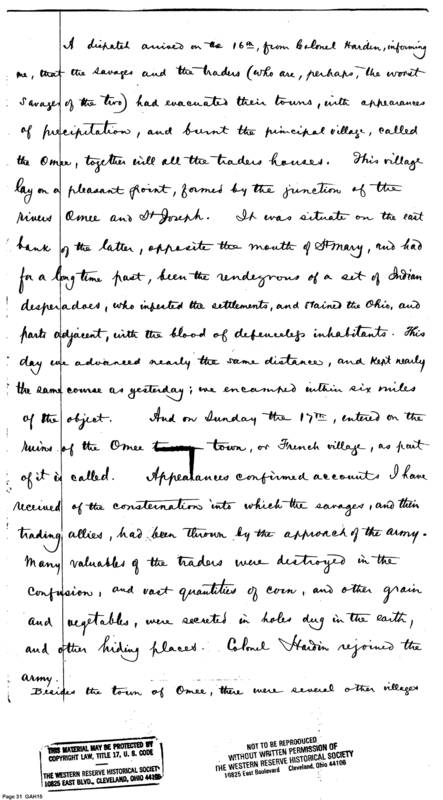 A dispatch arrived on the 16th, from Colonel Hardin, informing
me, that the savages and the traders (who are, perhaps, the worst
savages of the two) had evacuated their towns, with appearances
of precipitation, and burnt the principal village, called
the Omee, together with all the traders houses. This village
lay on a pleasant point, formed by the junction of the
rivers Omee and St Joseph. It was situate on the east
bank of the latter, opposite the mouth of St Mary, and had
for a long time past, been the rendezvous of a set of Indian
desperadoes, who infested the settlements, and stained the Ohio, and
parts adjacent, with the blood of defenceless inhabitants. This
day we advanced nearly the same distance, and kept nearly
the same course as yesterday; we encamped within six miles
of the object. And on Sunday the 17th, entered on the
ruins of the Omee town, or French village, as part
of it is called. Appearances confirmed accounts I have
received of the consternation into which the savages, and their
trading allies, had been thrown by the approach of the army.
Many valuables of the traders were destroyed in the
confusion, and vast quantities of corn, and other grain
and vegetables, were secreted in holes dug in the earth,
and other hiding places. Colonel Hardin rejoined the
army.
Besides the town of Omee, there were several other villages
THIS MATERIAL MAY BE PROTECTED BY
COPYRIGHT LAW, TITLE 17, U. S. CODE
THE WESTERN RESERVE HISTORICAL SOCIETY
10825 EAST BLVD., CLEVELAND, OHIO 44106
NOT TO BE REPRODUCED
WITHOUT WRITTEN PERMISSION OF
THE WESTERN RESERVE HISTORICAL SOCIETY
10825 East Boulevard Cleveland, Ohio 44106
Page 31 GAH15